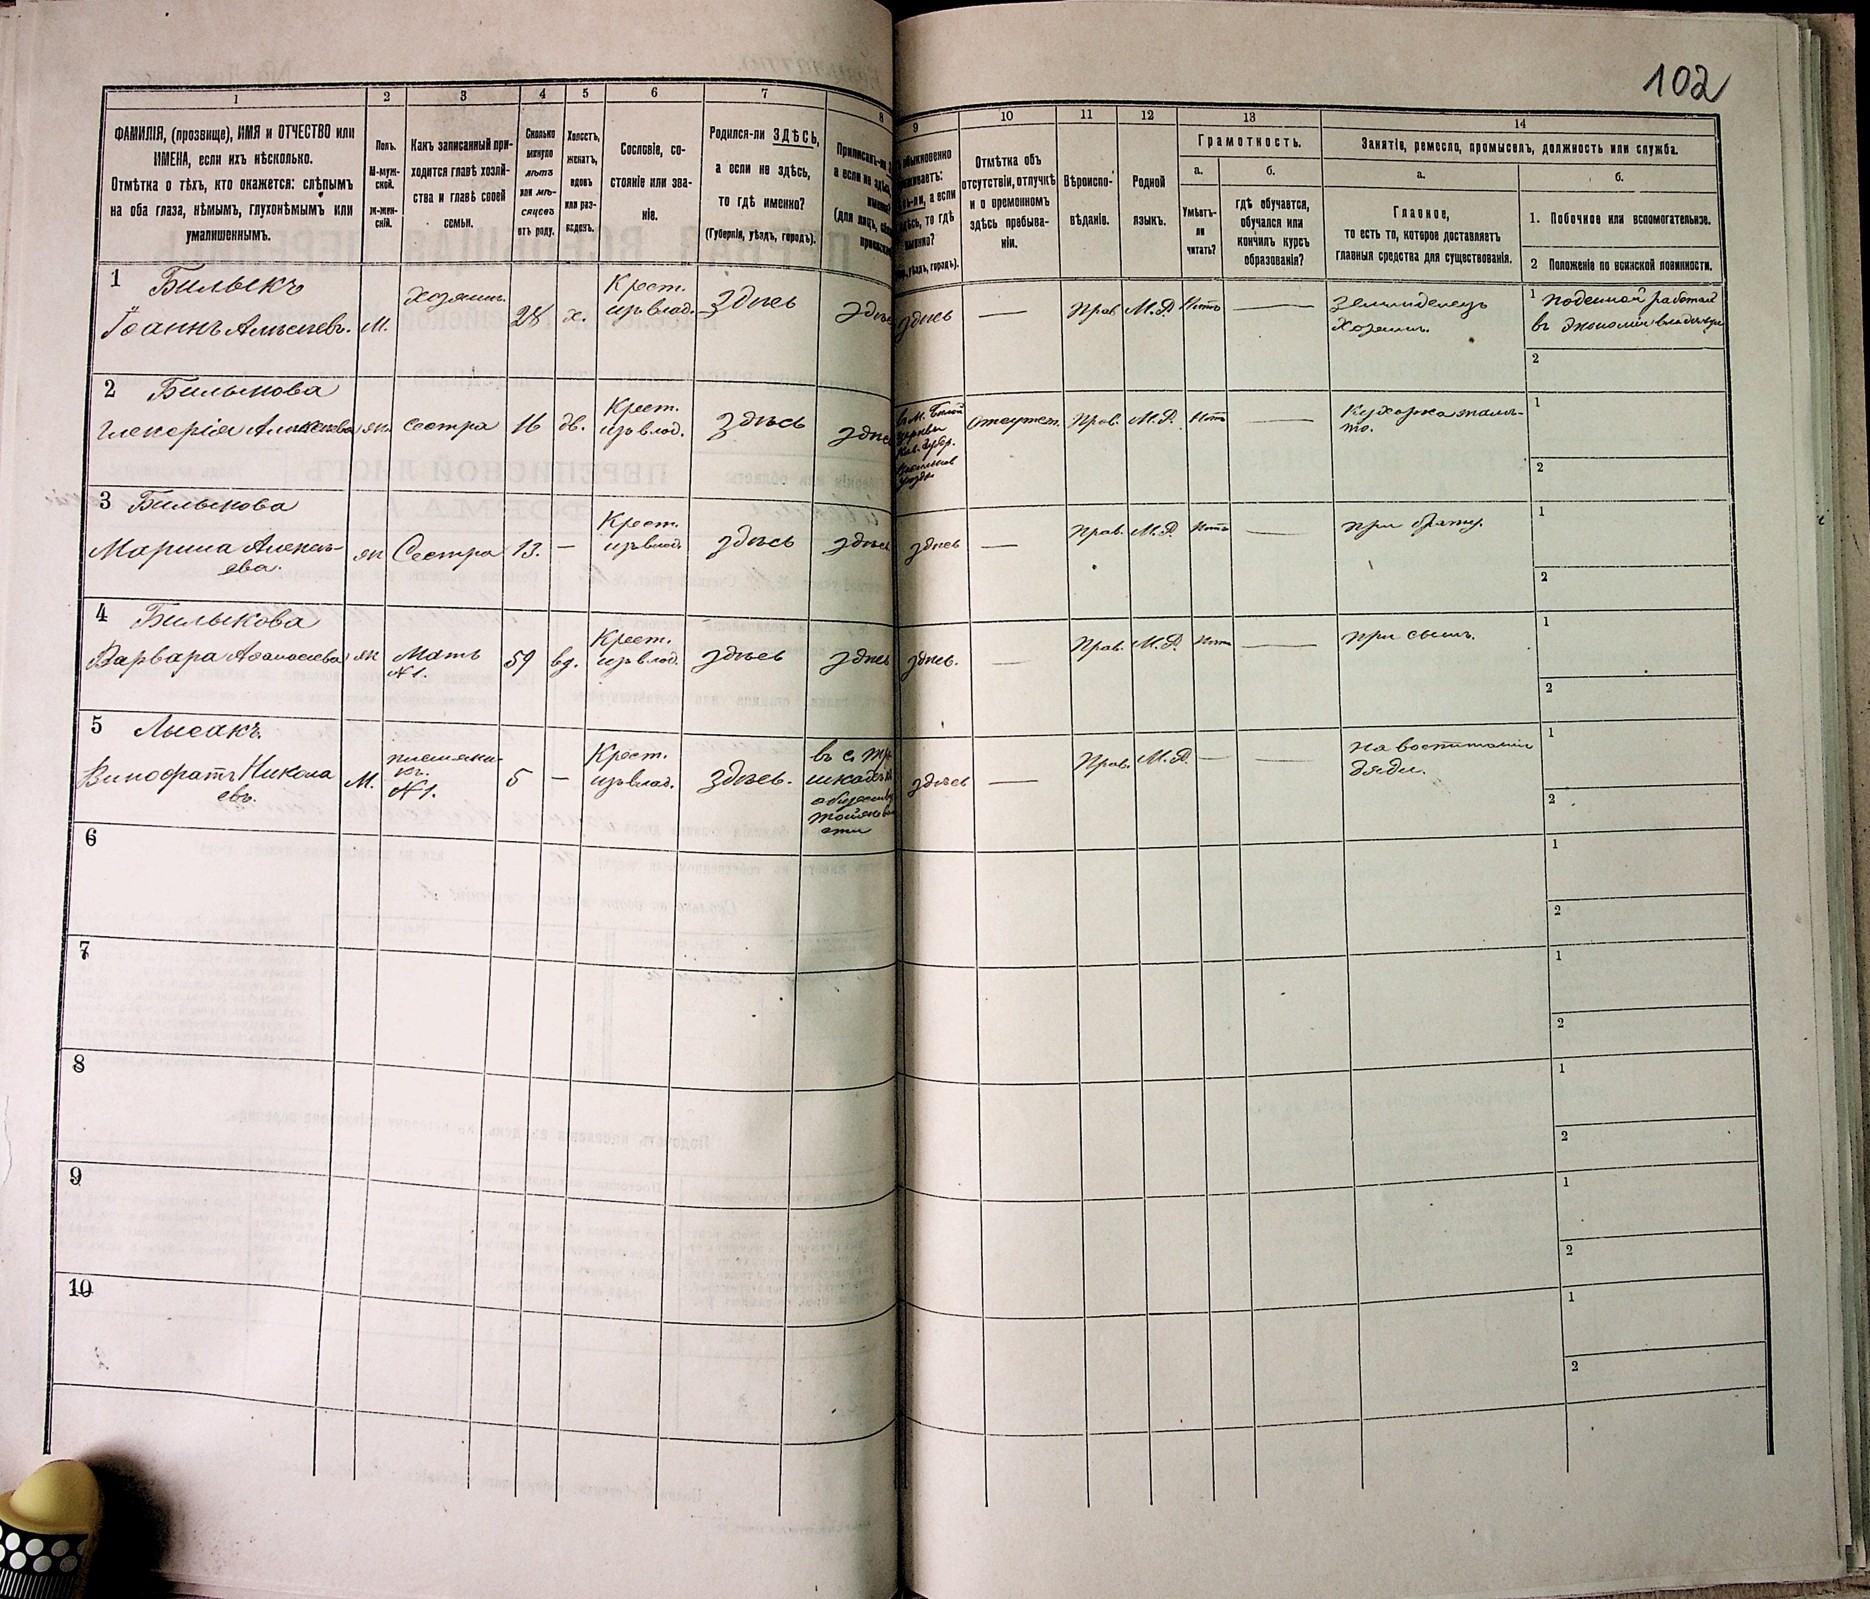 102
1
2
3
4
5
6
7
8
ФАМИЛІЯ, (прозвище), ИМЯ и ОТЧЕСТВО или
ИМЕНА, если ихъ нѣсколько.
Отмѣтка о тѣхъ, кто окажется: слѣпымъ
на оба глаза, нѣмымъ, глухонѣмымъ или
умалишеннымъ.
Полъ.
М-муж-
ской.
ж-жен-
скій.
Какъ записанный при-
ходится главѣ хозяй-
ства и главѣ своей
семьи.
Сколько
минуло
лѣтъ
или мѣ-
сяцевъ
отъ роду.
Холостъ,
женатъ,
вдовъ
или раз-
веденъ.
Сословіе, со-
стояніе или зва-
ніе.
Родился-ли ЗДѢСЬ,
а если не здѣсь,
то гдѣ именно?
(Губернія, уѣздъ, городъ).
9
10
11
12
13
14
Отмѣтка объ
отсутствіи, отлучкѣ
и о временномъ
здѣсь пребыва-
ніи.
Вѣроиспо-
вѣданіе.
Родной
языкъ.
Грамотность.
а.
б.
Умѣетъ-
ли
читать?
гдѣ обучается,
обучался или
кончилъ курсъ
образованія?
Занятіе, ремесло, промыселъ, должность или служба.
а.
б.
Главное,
то есть то, которое доставляетъ
главныя средства для существованія.
1. Побочное или вспомогательное.
2 Положеніе по воинской повинности.
1 Билыкъ
Іоаннъ Алексѣевъ. М. хозяинъ 28 х. Крест. изъ влад. Здѣсь здѣсь
здѣсь — Прав. М. Р. Нѣтъ — Земледѣлецъ хозяинъ. 1 поденной работой въ экономіи
2
2 Билыкова
Гликерія Алексѣева жн сестра 16 дв. Крест. изъ влад. Здѣсь здѣсь
въ М. Бѣлой Церкви Кіев. Губ. Отсутст. Прав. М. Р. Нѣтъ — Кухарка 1
2
3 Билыкова
Марина Алексѣ-
ева. жн Сестра 13. — Крест. изъ влад. здѣсь здѣсь
здѣсь — Прав. М. Р. Нѣтъ — при братѣ. 1
2
4 Билыкова
Варвара Аѳанасіева жн Мать №1. 59 вд. Крест. изъ влад. здѣсь здѣсь
здѣсь. — Прав. М. Р. Нѣтъ — при сынѣ. 1
2
5 Лысакъ.
Никола
евъ. М. племянни-
къ. №1. 5 — Крест. изъ влад. Здѣсь. въ с.
здѣсь — Прав. М. Р. — — На воспитаніи дяди. 1
2
6
1
2
7
1
2
8
1
2
9
1
2
10
1
2